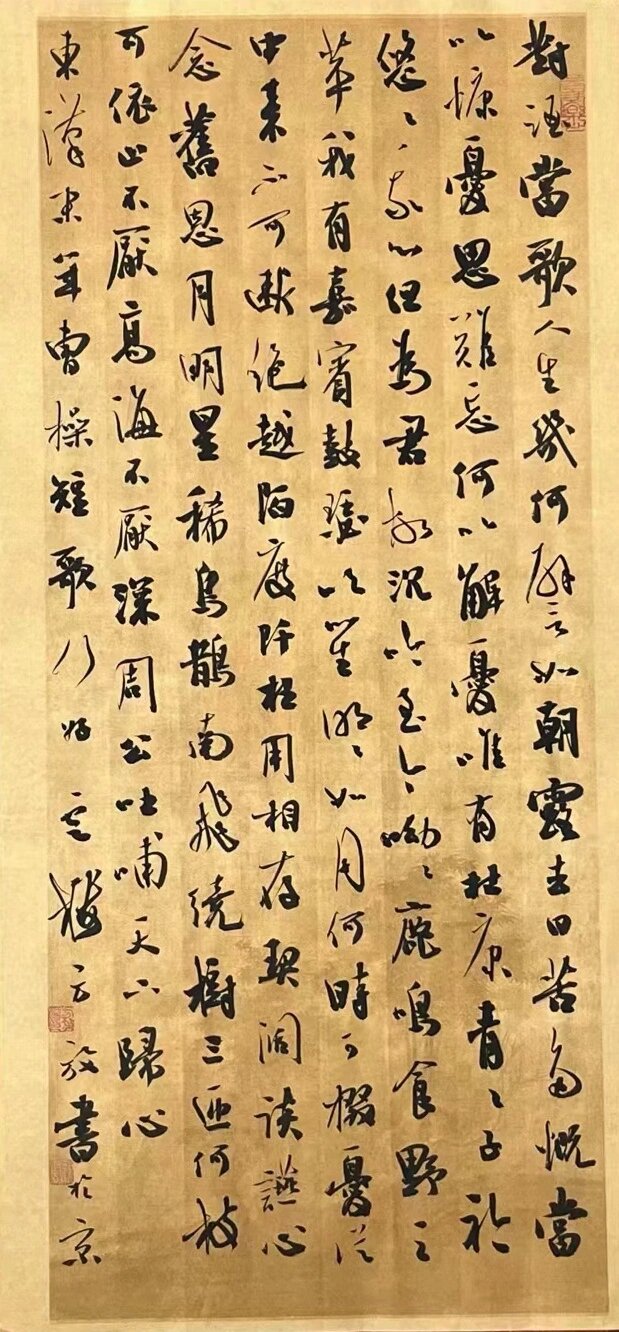 對酒當歌人生幾何譬如朝露去日苦多慨當
以慷憂思難忘何以解憂唯有杜康青〻子衿
悠〻我心但為君故沉吟至今呦〻鹿鳴食野之
苹我有嘉賓鼓瑟吹笙明〻如月何時可掇憂從
中來不可斷絕越陌度阡枉用相存契闊談讌心
念舊恩月明星稀烏鵲南飛繞樹三匝何枝
可依山不厭高海不厭深周公吐哺天下歸心
東漢末年曹操短歌行 書於京